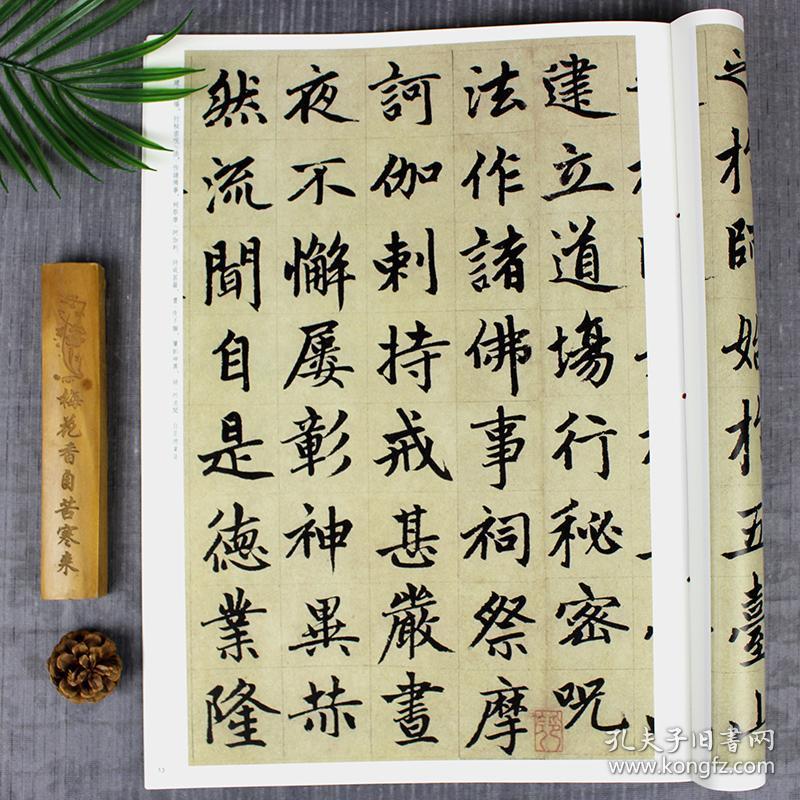 之扵師始扵五臺山
建立道場行秘密呪
法作諸佛事祠祭摩
訶伽剌持戒甚嚴晝
夜不懈屢彰神異赫
然流聞自是德業隆
梅花香自苦寒来
孔夫子旧書网
www.kongfz.com